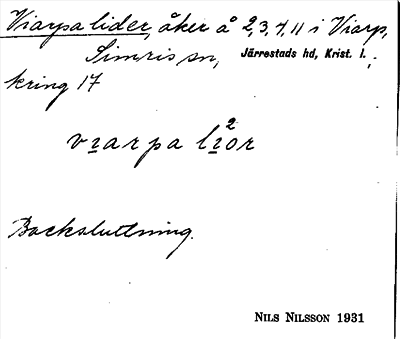 Viarpa lider, åker å 2, 3, 7, 11 i Viarp,
Simris sn, Järrestads hd, Krist. l.;
kring 17
vɪarpa lɪ²ər
Backsluttning.
NILS NILSSON 1931